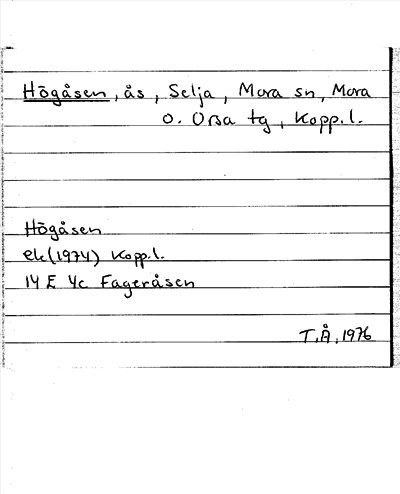 Högåsen, ås, Selja, Mora sn, Mora
o. Orsa tg, Kopp.l.
Högåsen
ek(1974) Kopp.l.
14 E 4c Fageråsen
T.Å. 1976